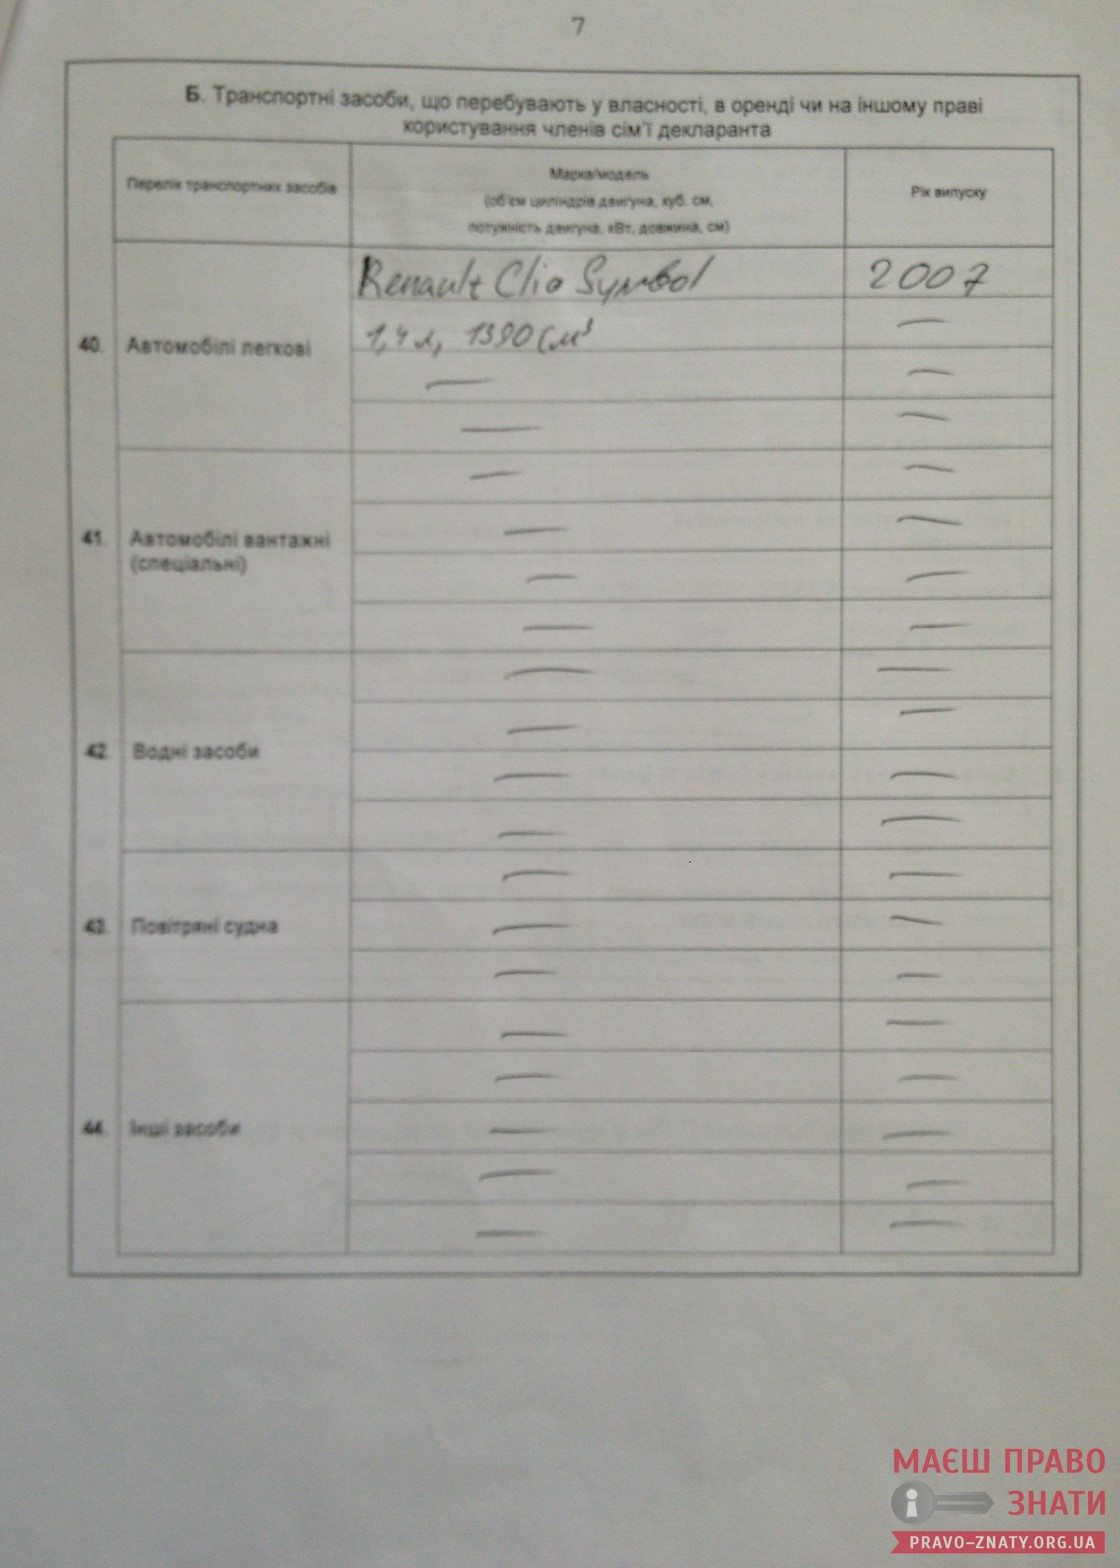 7
Б. Транспортні засоби, що перебувають у власності, в оренді чи на іншому праві
користування членів сім'ї декларанта
Перелік транспортних засобів
Марка/модель
(об'єм циліндрів двигуна, куб. см,
потужність двигуна, кВт, довжина, см)
Рік випуску
40. Автомобілі легкові
Renault Clio Symbol 2007
1,4 л, 1390 см³ —
— —
— —
41. Автомобілі вантажні
(спеціальні)
— —
— —
— —
— —
42. Водні засоби
— —
— —
— —
— —
43. Повітряні судна
— —
— —
— —
44. Інші засоби
— —
— —
— —
— —
— —
МАЄШ ПРАВО
ЗНАТИ
PRAVO-ZNATY.ORG.UA